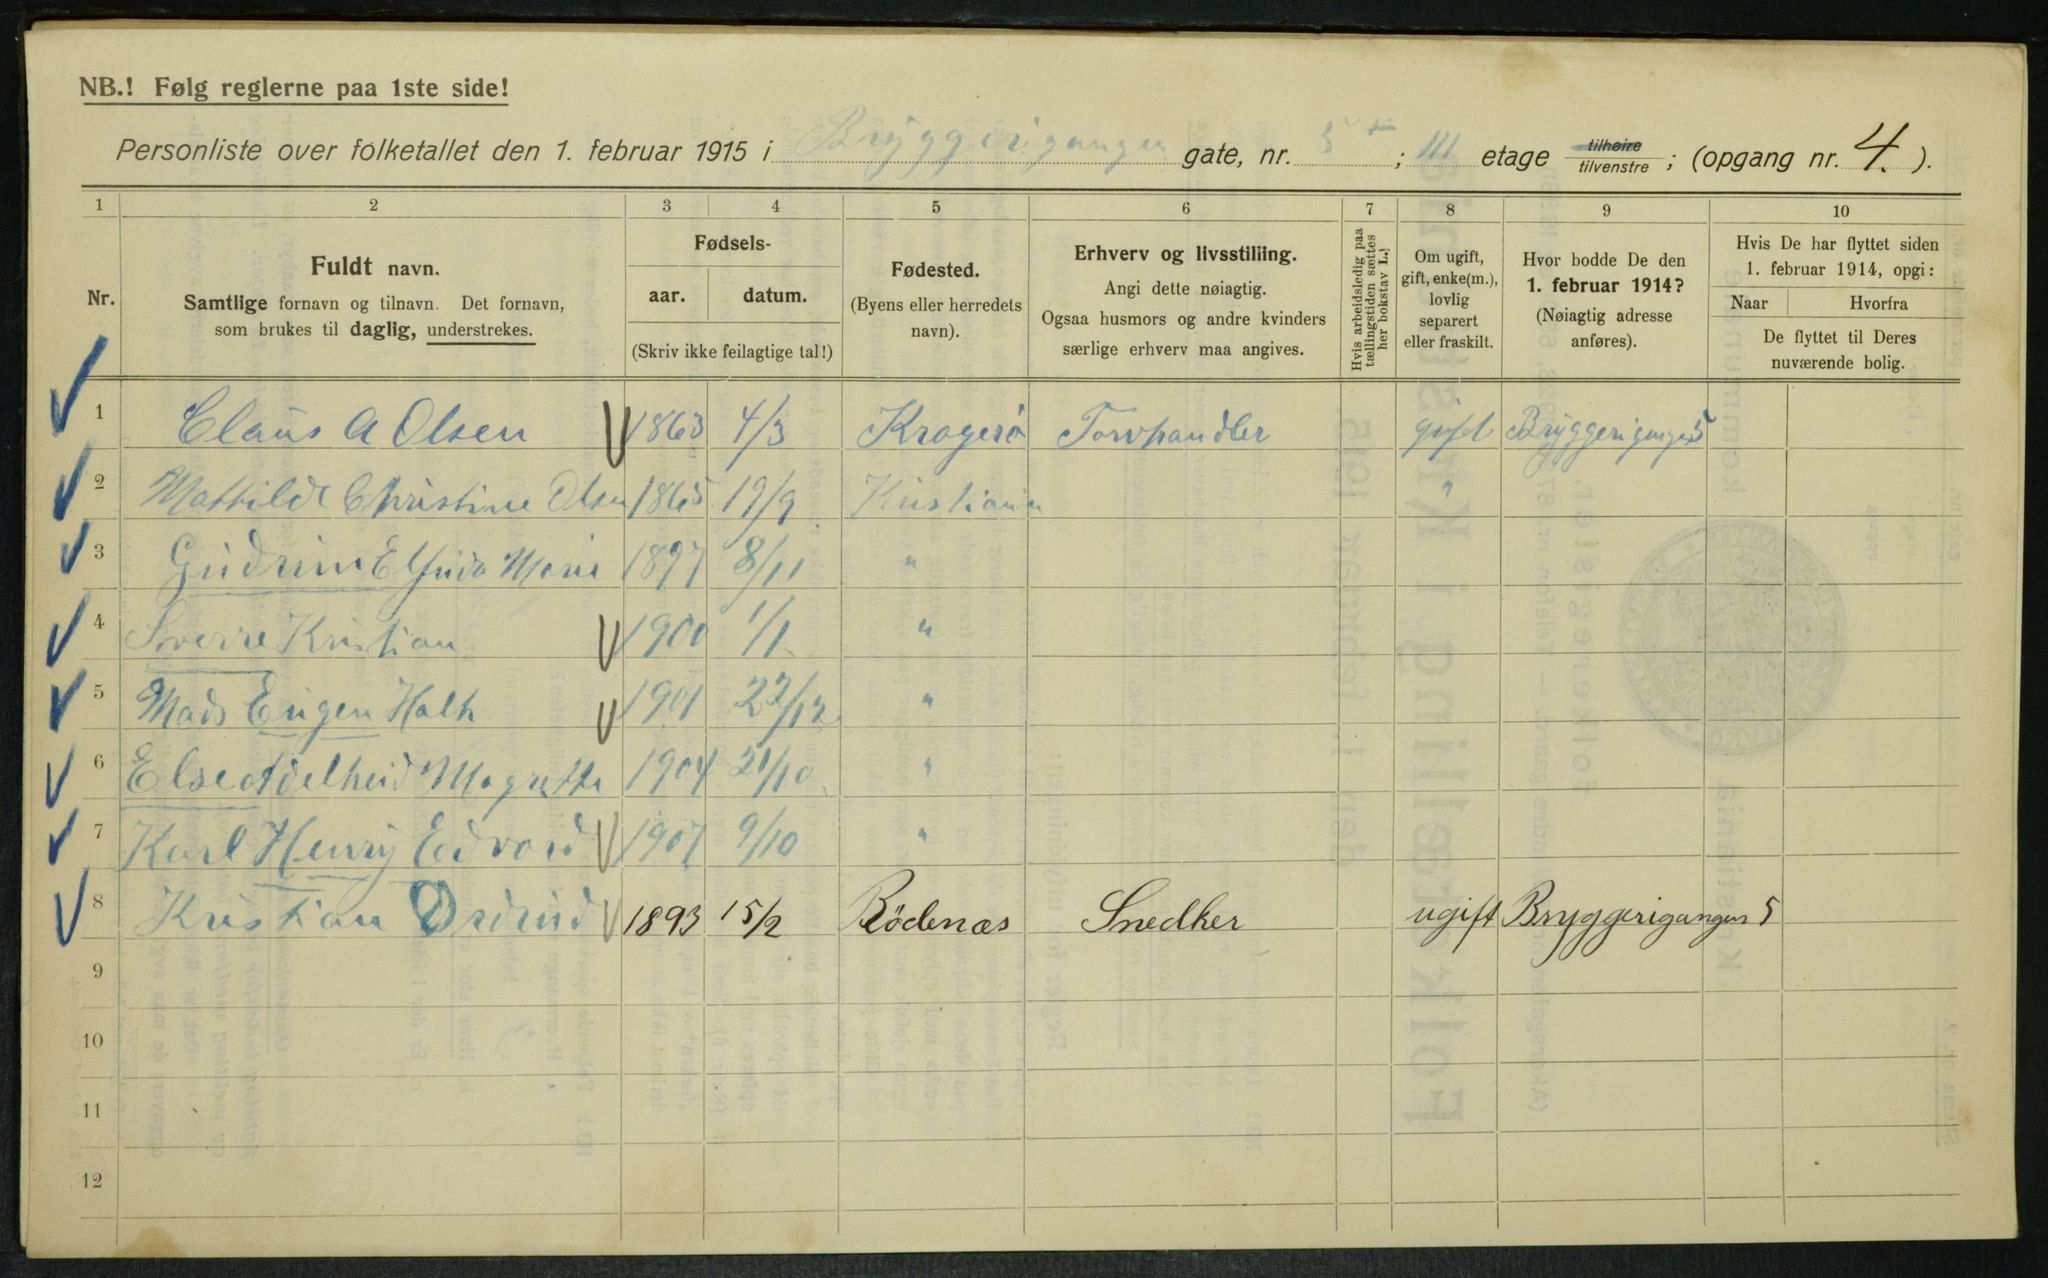 NB.! Følg reglerne paa 1ste side!
Personliste over folketallet den 1. februar 1915 i Bryggerigangen gate, nr. 5 ; III etage tilhøire tilvenstre ; (opgang nr. 4.).
1 2 3 4 5 6 7 8 9 10
Nr.
Fuldt navn.
Samtlige fornavn og tilnavn. Det fornavn,
som brukes til daglig, understrekes.
Fødsels-
aar. datum.
(Skriv ikke feilagtige tal!)
Fødested.
(Byens eller herredets
navn).
Erhverv og livsstilling.
Angi dette nøiagtig.
Ogsaa husmors og andre kvinders
særlige erhverv maa angives.
Hvis arbeidsledig paa
tællingstiden sættes
her bokstav L.!
Om ugift,
gift, enke(m.),
lovlig
separert
eller fraskilt.
Hvor bodde De den
1. februar 1914?
(Nøiagtig adresse
anføres).
Hvis De har flyttet siden
1. februar 1914, opgi:
Naar Hvorfra
De flyttet til Deres
nuværende bolig.
1 Claus A Olsen 1863 4/3 Kragerö Torvhandler gift Bryggerigangen 5
2 Mathilde Christine Olsen 1865 19/9 Kristiania "
3 Gudrun Elfrida Marie 1897 8/11 "
4 Sverre Kristian 1900 1/1 "
5 Mads Eugen Halk 1901 22/12 "
6 Else Adelheid Magretha 1904 21/10 "
7 Karl Henry Edvard 1907 9/10 "
8 Kristian 1893 15/2 Rödenæs Snedker ugift Bryggerigangen 5
9
10
11
12